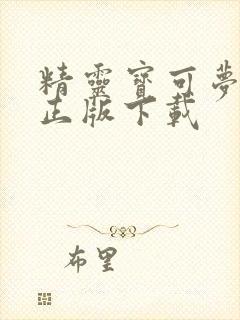 精靈寶可夢
正版下載
布里